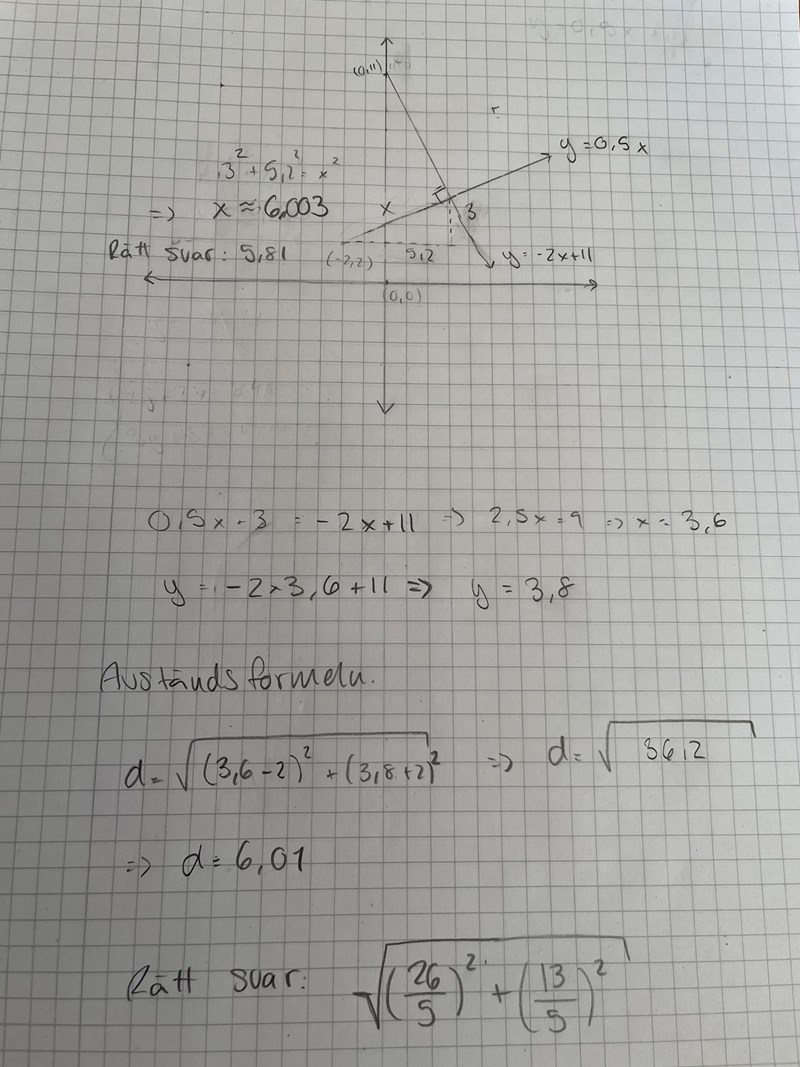 (0,11)
y = 0,5x
3² + 5,2² = x²
=> x ≈ 6,003
x
3
Rätt svar: 5,81
(-2,2)
5,2
y = -2x+11
(0,0)
0,5x - 3 = -2x+11 => 2,5x = 9 => x = 3,6
y = -2×3,6+11 => y = 3,8
Avståndsformeln.
d = √((3,6-2)² + (3,8+2)²) => d = √36,2
=> d = 6,01
Rätt svar: √((26/5)² + (13/5)²)